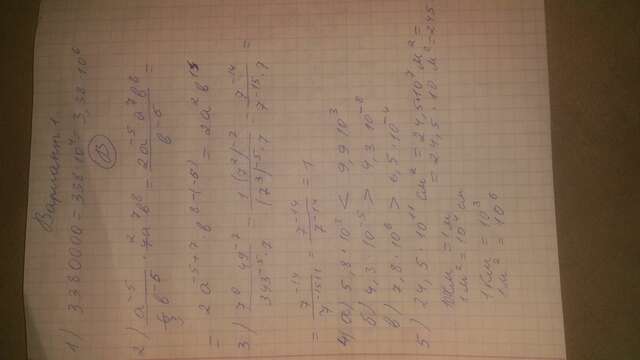 Вариант 1
1) 3380000 = 338 · 10⁴ = 3,38 · 10⁶
В
2) a⁻⁵ / b⁻⁵ · a⁷b⁸ = 2a⁻⁵ a⁷b⁸ / b⁻⁵ =
= 2a⁻⁵⁺⁷ · b⁸⁻⁽⁻⁵⁾ = 2a²b¹³
3) 7⁰ 49⁻⁷ / 343⁻⁵ · 7 = 1 · (7²)⁻⁷ / (7³)⁻⁵ · 7 = 7⁻¹⁴ / 7⁻¹⁵ · 7 =
= 7⁻¹⁴ / 7⁻¹⁵⁺¹ = 7⁻¹⁴ / 7⁻¹⁴ = 1
4) а) 5,8 · 10³ < 9,9 10³
б) 4,3 · 10⁻⁵ > 4,3 10⁻⁸
в) 7,8 · 10⁶ > 6,5 · 10⁻⁴
5) 24,5 · 10¹¹ см² = 24,5·10⁷ м² =
= 24,5 · 10 м² = 245
= 1м
1м² = 10⁴ см
1км = 10³
1м² = 10⁶